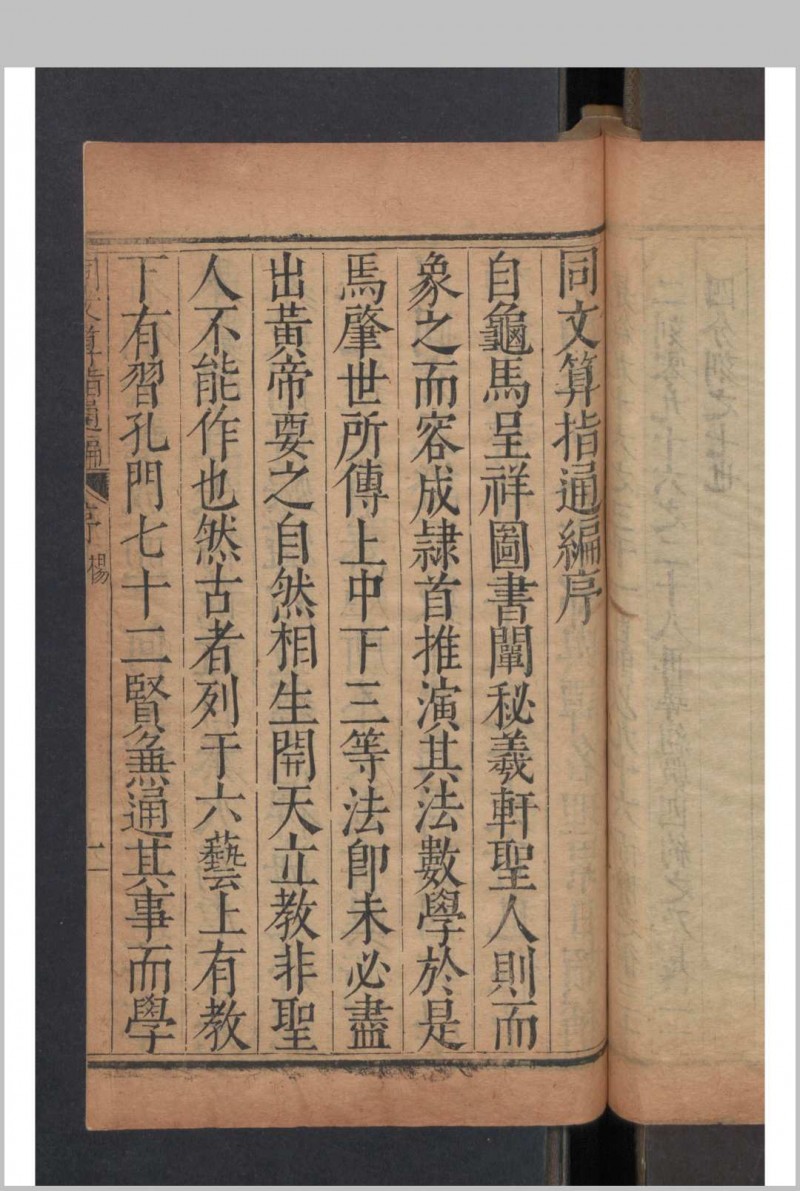 同文算指通編序
自龜馬呈祥圖書闡秘羲軒聖人則而
象之而容成隷首推演其法數學於是
焉肇世所傳上中下三等法卽未必盡
出黃帝要之自然相生開天立教非聖
人不能作也然古者列于六藝上有教
下有習孔門七十二賢兼通其事而學
同文算指通編 序 楊